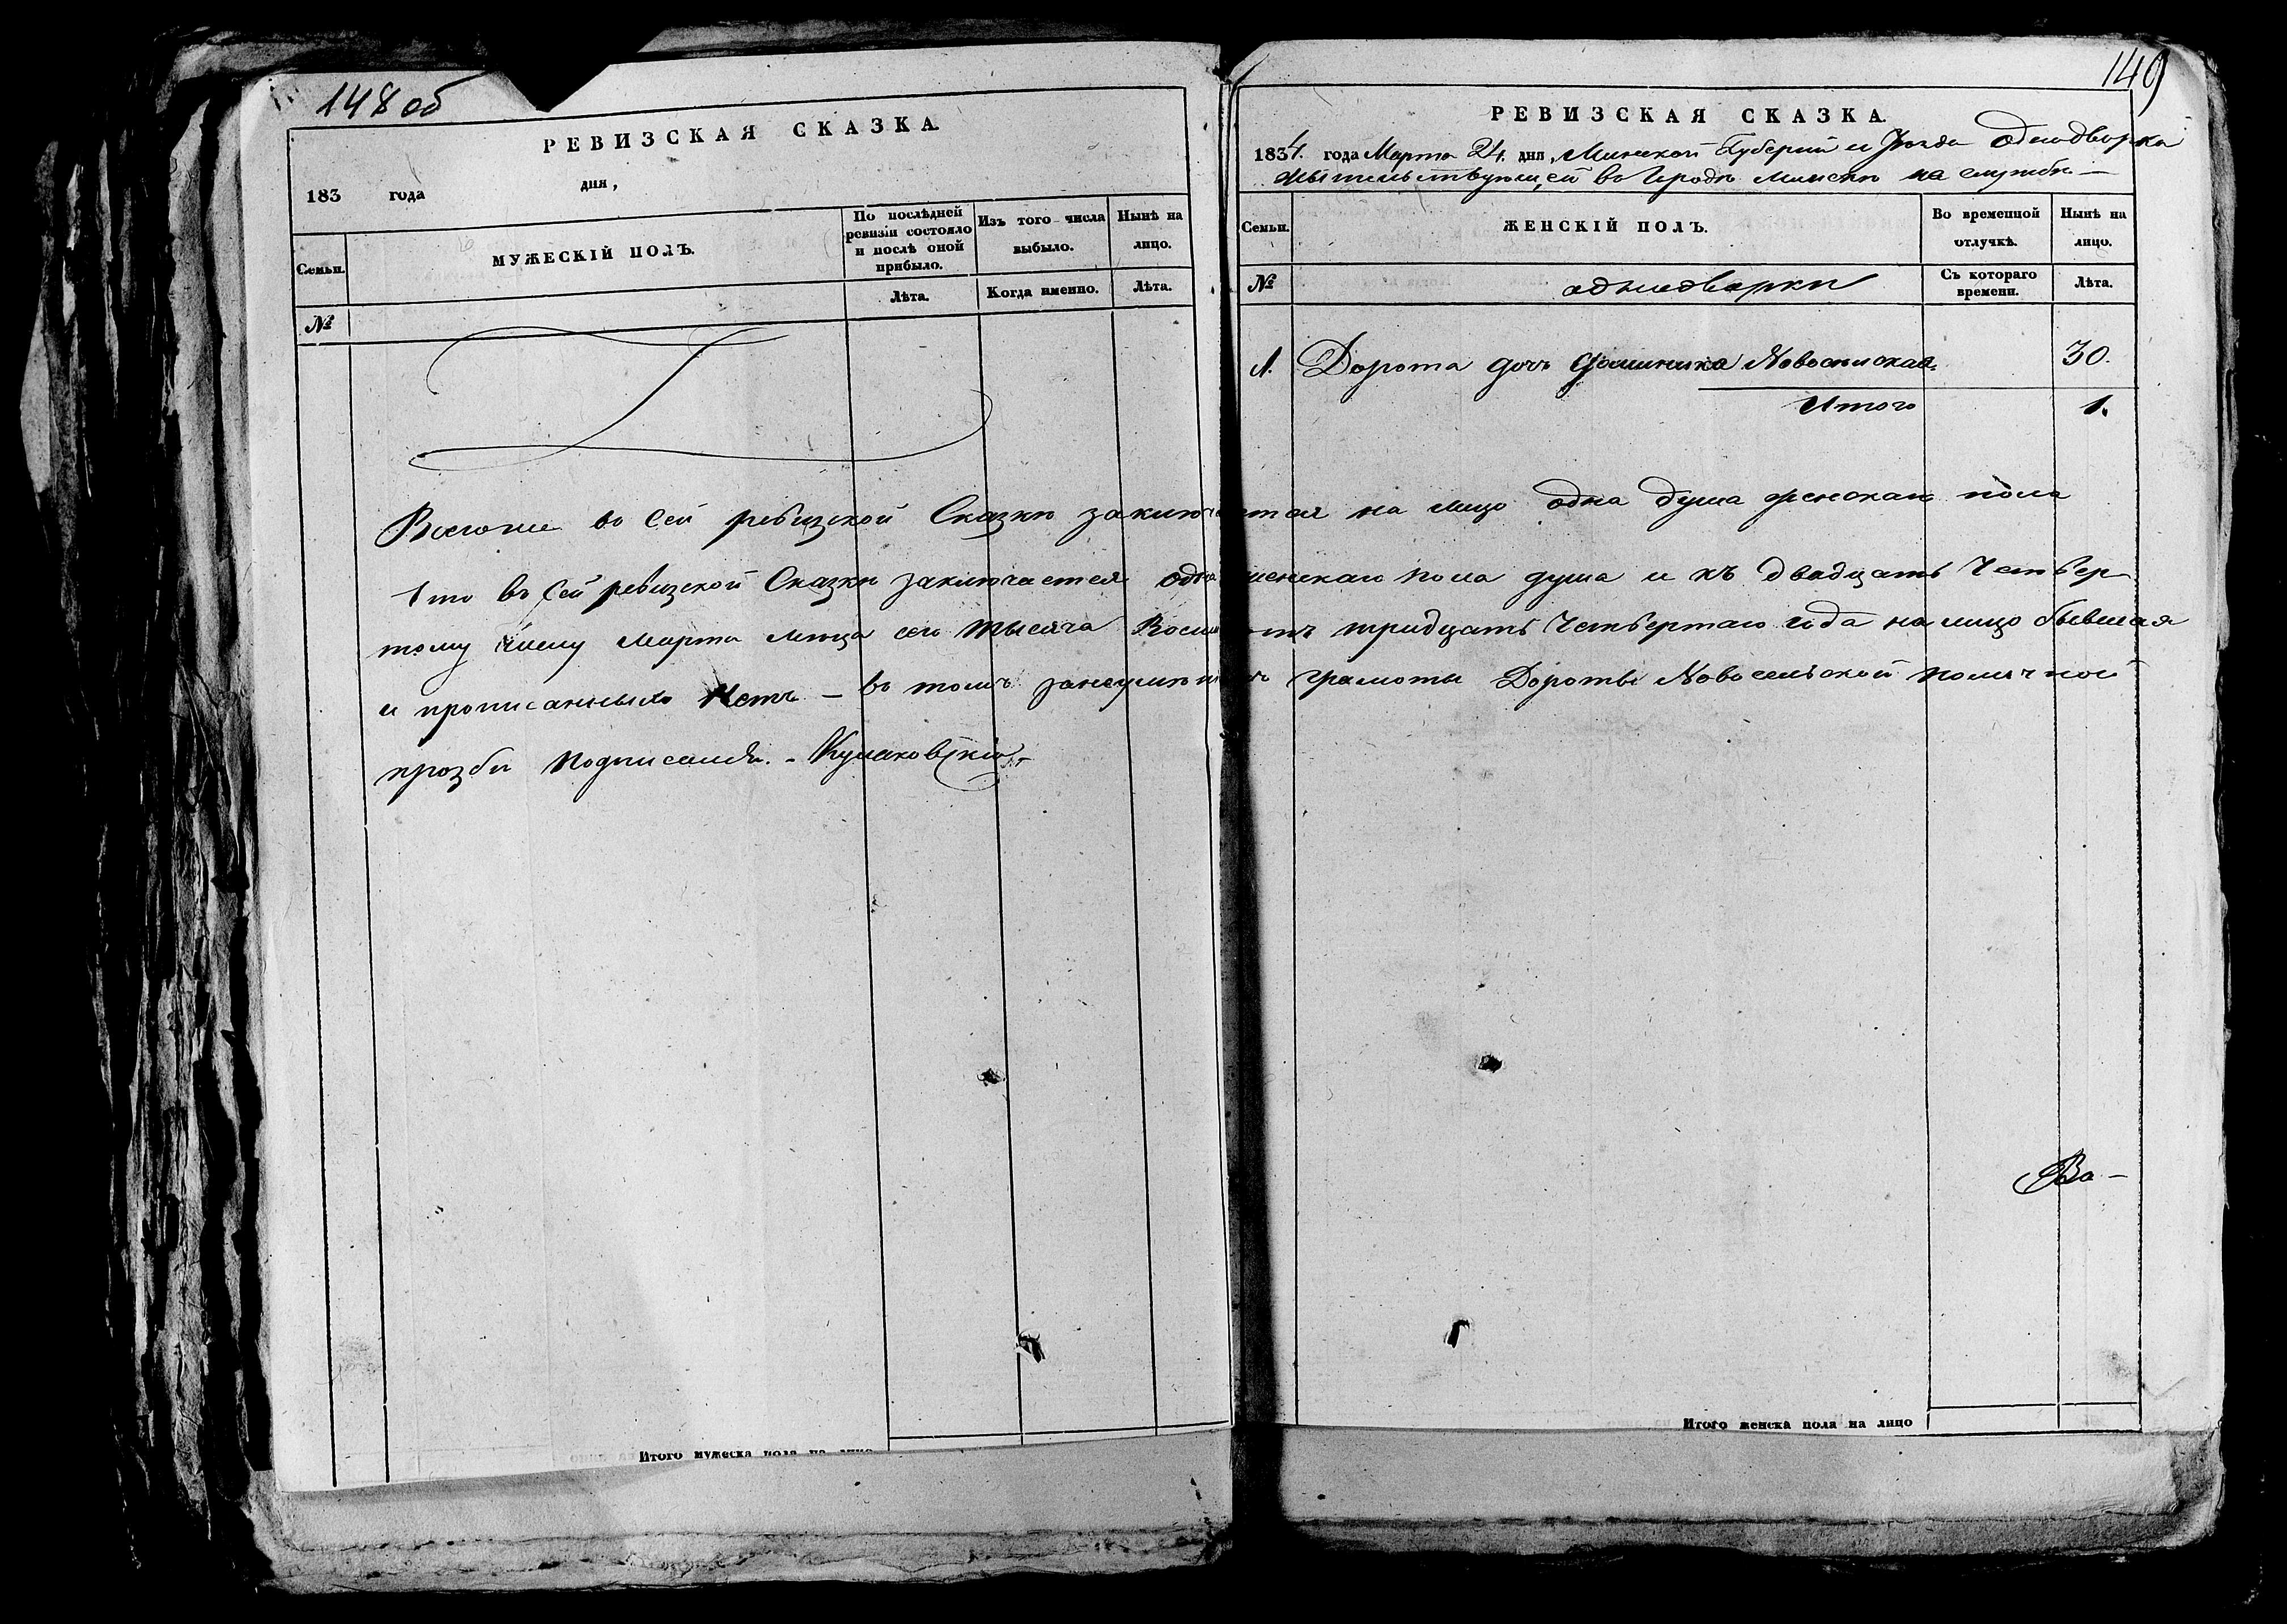 148 об
РЕВИЗСКАЯ СКАЗКА.
183 года дня,
Семьи.
МУЖЕСКІЙ ПОЛЪ.
По послѣдней ревизіи состояло и послѣ оной прибыло.
Изъ того числа выбыло.
Нынѣ на лицо.
№
Лѣта.
Когда именно.
Лѣта.
149
РЕВИЗСКАЯ СКАЗКА.
1834. года Марта 24. дня, Минской Губерніи и Уѣзда однодворки
жительствующей въ Городѣ Минскѣ на службѣ —
Семьи.
ЖЕНСКІЙ ПОЛЪ.
Во временной отлучкѣ.
Нынѣ на лицо.
№
однодворки
Съ котораго времени.
Лѣта.
1. Дорота дочь Доминика Новосельская 30.
Итого 1.
Всего въ сей ревизской Сказки заключается на лицо одна душа женскаго пола
Что въ сей ревизской Сказки заключается одна женскаго пола душа и къ двадцать Четвер-
тому числу Марта мѣсяца сего тысяча Восемсотъ тридцать Четвертаго года на лицо бывшая
и прописанныхъ Нетъ — въ томъ грамоты Дороты Новосельской
прозбы подписался. - Кулаковскій
Ва -
Итого мужеска пола на лицо
Итого женска пола на лицо